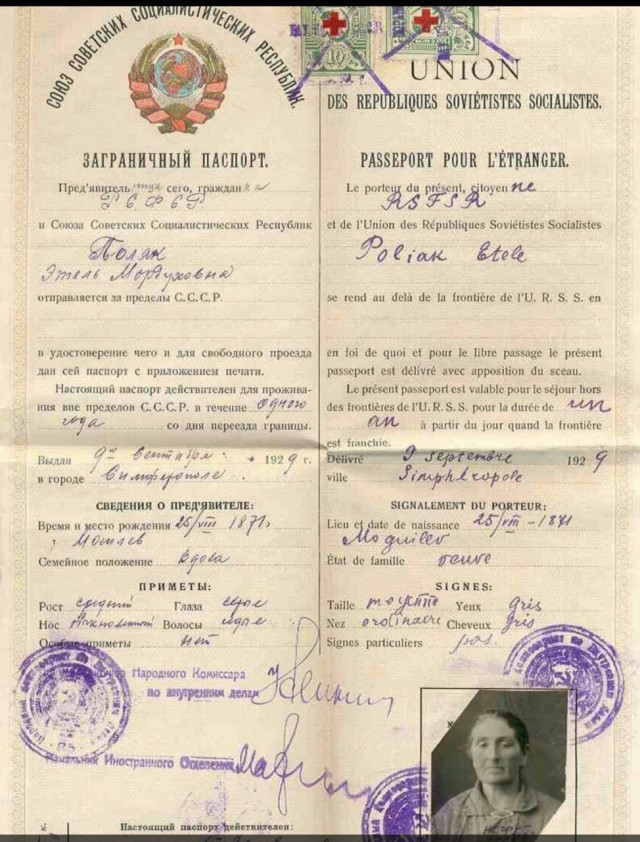 СОЮЗ СОВЕТСКИХ СОЦИАЛИСТИЧЕСКИХ РЕСПУБЛИК.
ЗАГРАНИЧНЫЙ ПАСПОРТ.
Пред'явитель ница сего, гражданка
Р.С.Ф.С.Р.
и Союза Советских Социалистических Республик
Поляк
Этель Мордуховна
отправляется за пределы С.С.С.Р.
в удостоверение чего и для свободного проезда
дан сей паспорт с приложением печати.
Настоящий паспорт действителен для прожива-
ния вне пределов С.С.С.Р. в течение одного
года со дня переезда границы.
Выдан 9го Сентября 1929 г.
в городе Симферополе
СВЕДЕНИЯ О ПРЕД'ЯВИТЕЛЕ:
Время и место рождения 25/VIII 1871
Семейное положение вдова
ПРИМЕТЫ:
Рост средний Глаза серые
Нос Волосы
Особые приметы нет
Народного Комиссара
по внутренним делам
Начальник Иностранного Отделения
Настоящий паспорт действителен:
10
UNION
DES REPUBLIQUES SOVIÉTISTES SOCIALISTES.
PASSEPORT POUR L'ÉTRANGER.
Le porteur du présent, citoyenne
RSFSR
et de l'Union des Républiques Soviétistes Socialistes
Poliak Etele
se rend au delà de la frontière de l'U. R. S. S. en
en foi de quoi et pour le libre passage le présent
passeport est délivré avec apposition du sceau.
Le présent passeport est valable pour le séjour hors
des frontières de l'U. R. S. S. pour la durée de un
an à partir du jour quand la frontière
est franchie.
Délivré 9 septembre 1929
ville Simphéropole
SIGNALEMENT DU PORTEUR:
Lieu et date de naissance 25/VIII-1871
Moguilev
État de famille veuve
SIGNES:
Taille moyenne Yeux gris
Nez ordinaire Cheveux gris
Signes particuliers pas.